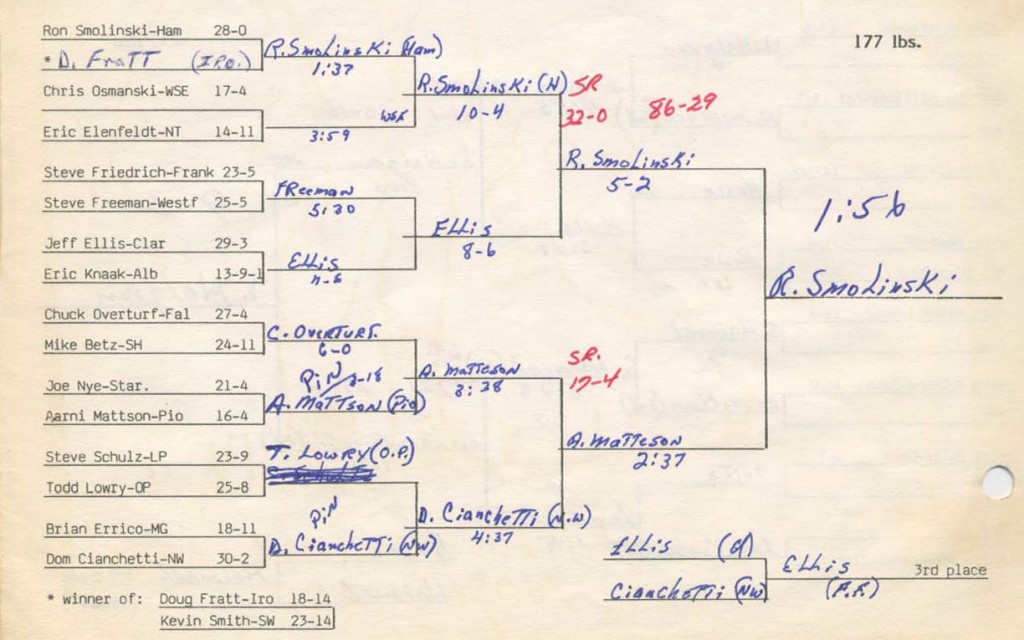 177 lbs.
Ron Smolinski-Ham 28-0
* D. FraTT (IRO.)
R. SmoLinsKi (Ham)
1:37
Chris Osmanski-WSE 17-4
Eric Elenfeldt-NT 14-11
WSE
3:59
R. SmoLinsKi (H)
10-4
SR
32-0
86-29
Steve Friedrich-Frank 23-5
Steve Freeman-Westf 25-5
FReeman
5:30
Jeff Ellis-Clar 29-3
Eric Knaak-Alb 13-9-1
ELLis
ELLis
8-6
R. SmoLinsKi
5-2
1:56
R. SmoLinsKi
Chuck Overturf-Fal 27-4
Mike Betz-SH 24-11
C. OverTurf.
6-0
Joe Nye-Star. 21-4
Aarni Mattson-Pio 16-4
PiN
A. MaTTson (Pio)
A. maTTeson
3:38
SR.
17-4
Steve Schulz-LP 23-9
Todd Lowry-OP 25-8
T. Lowry (O.P.)
Brian Errico-MG 18-11
Dom Cianchetti-NW 30-2
PiN
D. CianCheTTi (NW)
D. CianCheTTi (N.W)
4:37
A. maTTeson
2:37
ELLis (Cl)
CianCheTTi (NW)
ELLis
3rd place
* winner of: Doug Fratt-Iro 18-14
Kevin Smith-SW 23-14